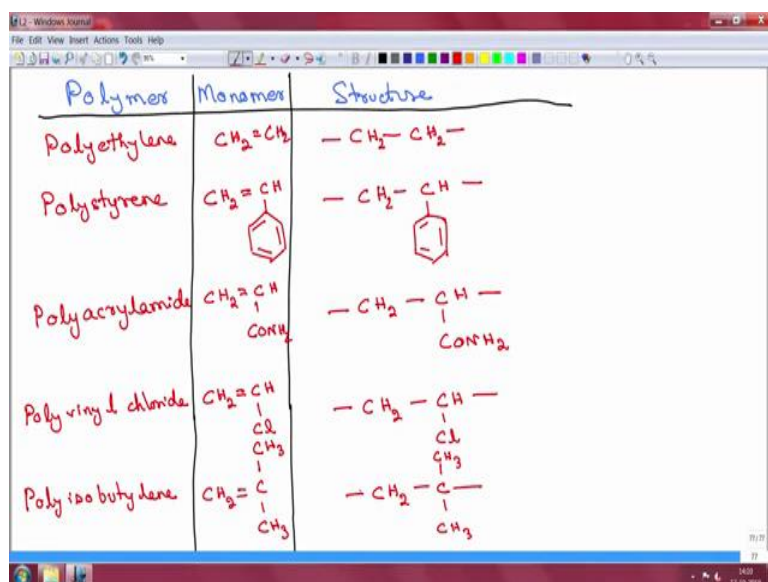 L2 - Windows Journal
File Edit View Insert Actions Tools Help
Polymer Monomer Structure
Polyethylene CH₂=CH₂ — CH₂— CH₂—
Polystyrene CH₂=CH — CH₂— CH —
Polyacrylamide CH₂=CH — CH₂ — CH —
CONH₂ CONH₂
Poly vinyl chloride CH₂=CH — CH₂ — CH —
Cl Cl
CH₃ CH₃
Poly isobutylene CH₂=C — CH₂ — C —
CH₃ CH₃
77/77
77
14:20